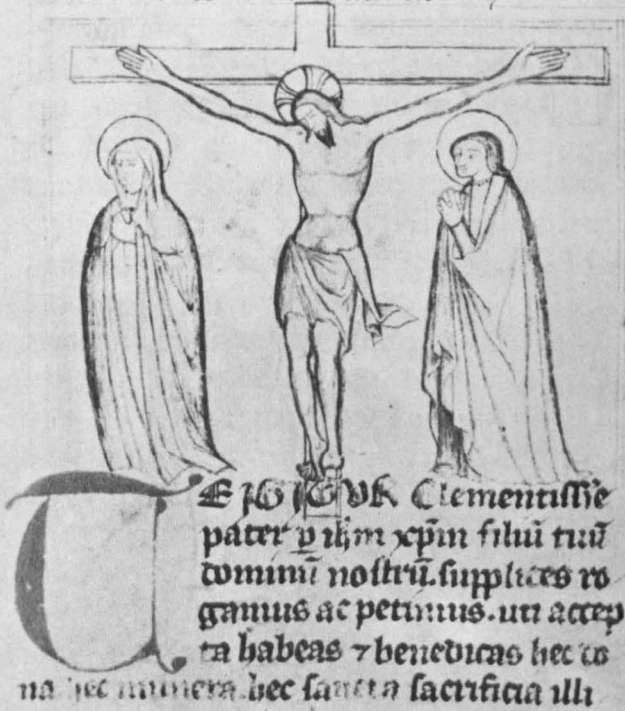 TE IGITUR Clementissīe
pater ꝑ ihm̄ xp̄m filiū tuū
dominū nostrū. supplices ro
gamus ac petimus. uti accep
ta habeas ⁊ benedicas hec do
na hec munera. hec sancta sacrificia illi